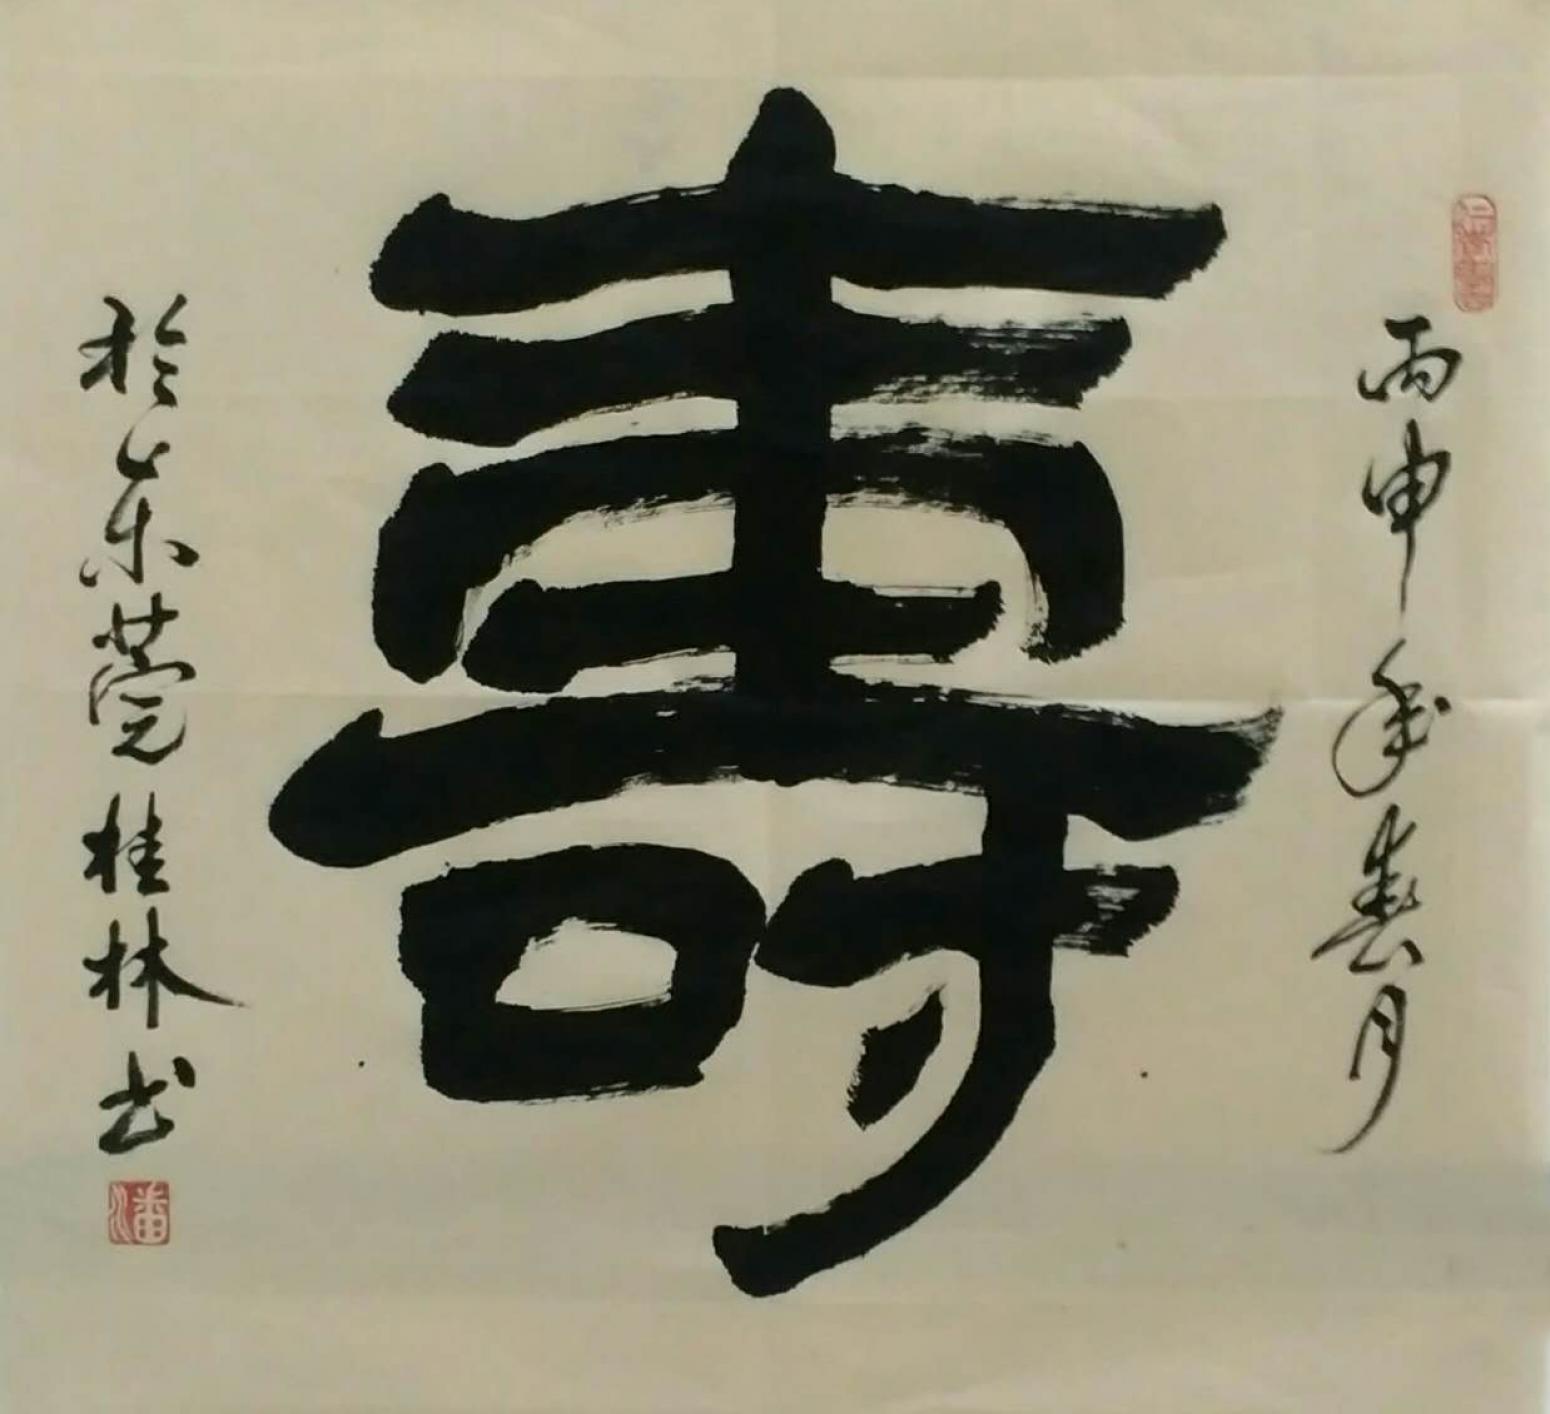 丙申年春月
壽
於东莞桂林书
潘